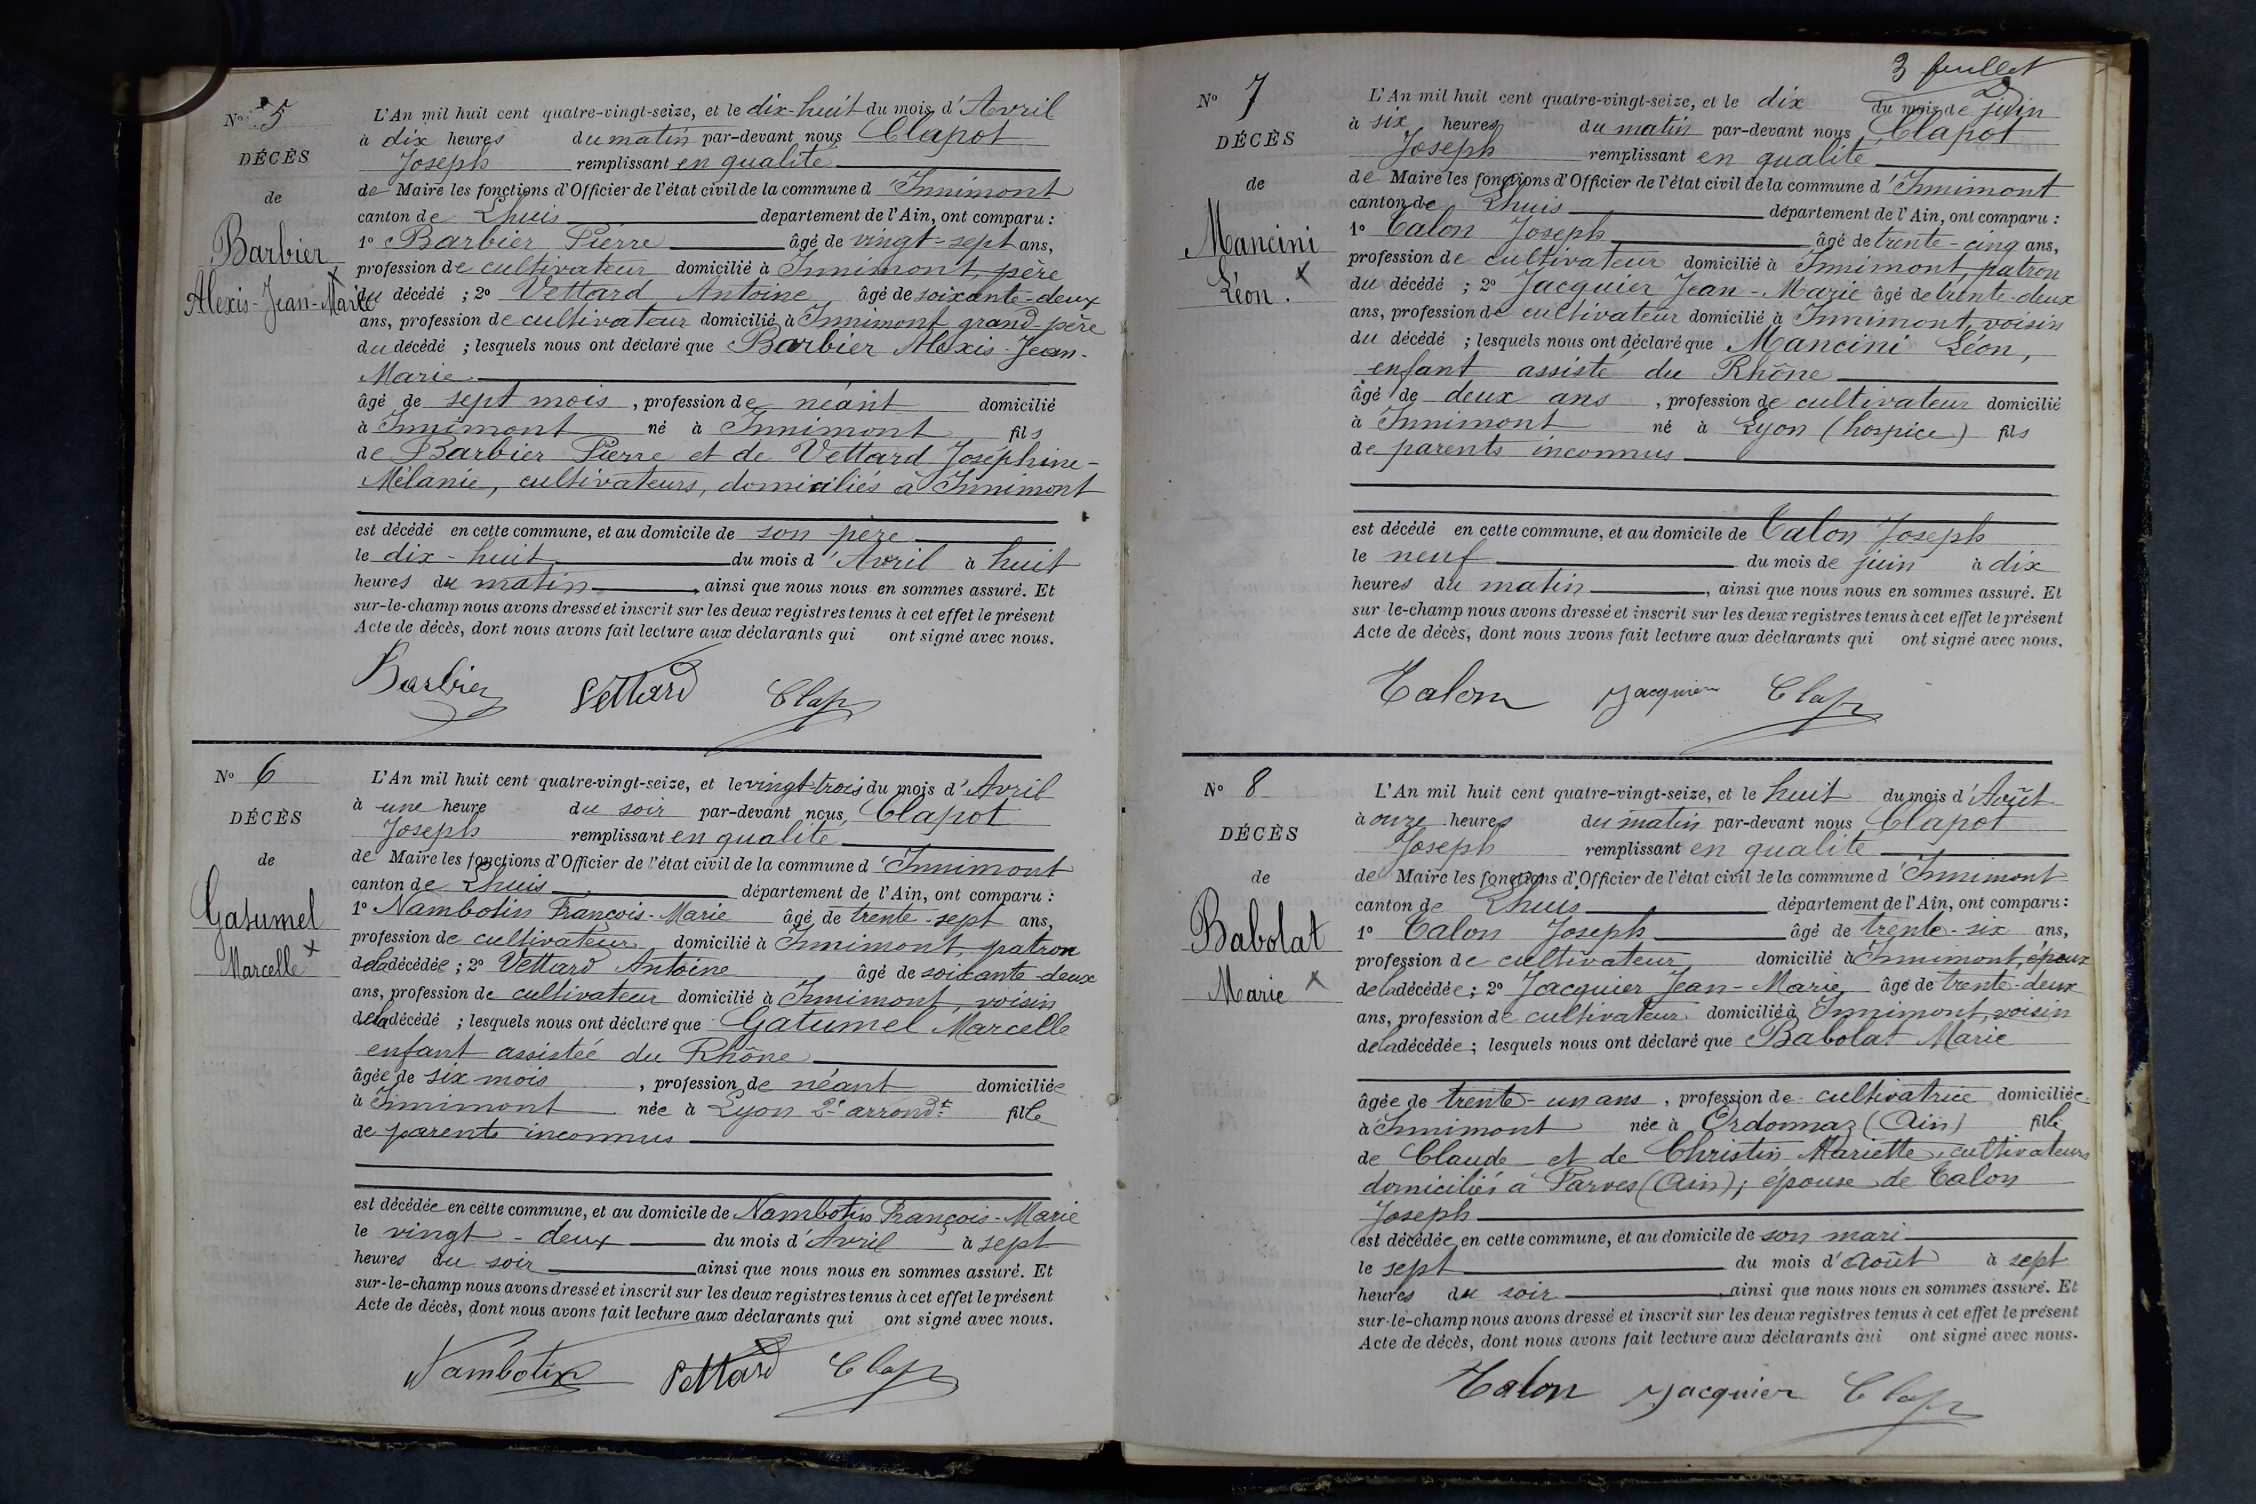 N° 5
DÉCÈS
de
Barbier
Alexis-Jean-Marie
L'An mil huit cent quatre-vingt-seize, et le dix-huit du mois d'Avril
à dix heures du matin par-devant nous Clapot
Joseph remplissant en qualité
de Maire les fonctions d'Officier de l'état civil de la commune d'Innimont
canton de Lhuis département de l'Ain, ont comparu :
1° Barbier Pierre âgé de vingt-sept ans,
profession de cultivateur domicilié à Innimont, père
du décédé ; 2° Vettard Antoine âgé de soixante-deux
ans, profession de cultivateur domicilié à Innimont grand-père
du décédé ; lesquels nous ont déclaré que Barbier Alexis-Jean-
Marie
âgé de sept mois, profession de néant domicilié
à Innimont né à Innimont fils
de Barbier Pierre et de Vettard Joséphine-
Mélanie, cultivateurs, domiciliés à Innimont
est décédé en cette commune, et au domicile de son père
le dix-huit du mois d'Avril à huit
heures du matin, ainsi que nous nous en sommes assuré. Et
sur-le-champ nous avons dressé et inscrit sur les deux registres tenus à cet effet le présent
Acte de décès, dont nous avons fait lecture aux déclarants qui ont signé avec nous.
Barbier Vettard Clap
N° 6
DÉCÈS
de
Gatumel
Marcelle
L'An mil huit cent quatre-vingt-seize, et le vingt-trois du mois d'Avril
à une heure du soir par-devant nous Clapot
Joseph remplissant en qualité
de Maire les fonctions d'Officier de l'état civil de la commune d'Innimont
canton de Lhuis département de l'Ain, ont comparu :
1° Nambotin François-Marie âgé de trente-sept ans,
profession de cultivateur domicilié à Innimont, patron
de la décédée ; 2° Vettard Antoine âgé de soixante-deux
ans, profession de cultivateur domicilié à Innimont, voisin
de la décédé ; lesquels nous ont déclaré que Gatumel Marcelle
enfant assistée du Rhône
âgée de six mois, profession de néant domiciliée
à Innimont née à Lyon 2e arrondt fille
de parents inconnus
est décédée en cette commune, et au domicile de Nambotin François-Marie
le vingt-deux du mois d'Avril à sept
heures du soir ainsi que nous nous en sommes assuré. Et
sur-le-champ nous avons dressé et inscrit sur les deux registres tenus à cet effet le présent
Acte de décès, dont nous avons fait lecture aux déclarants qui ont signé avec nous.
Nambotin Vettard Clap
3 feuillet
N° 7
DÉCÈS
de
Mancini
Léon.
L'An mil huit cent quatre-vingt-seize, et le dix du mois de juin
à six heures du matin par-devant nous Clapot
Joseph remplissant en qualité
de Maire les fonctions d'Officier de l'état civil de la commune d'Innimont
canton de Lhuis département de l'Ain, ont comparu :
1° Talon Joseph âgé de trente-cinq ans,
profession de cultivateur domicilié à Innimont, patron
du décédé ; 2° Jacquier Jean-Marie âgé de trente-deux
ans, profession de cultivateur domicilié à Innimont, voisin
du décédé ; lesquels nous ont déclaré que Mancini Léon,
enfant assisté du Rhône
âgé de deux ans, profession de cultivateur domicilié
à Innimont né à Lyon (hospice) fils
de parents inconnus
est décédé en cette commune, et au domicile de Talon Joseph
le neuf du mois de juin à dix
heures du matin, ainsi que nous nous en sommes assuré. Et
sur-le-champ nous avons dressé et inscrit sur les deux registres tenus à cet effet le présent
Acte de décès, dont nous avons fait lecture aux déclarants qui ont signé avec nous.
Talon Jacquier Clap
N° 8
DÉCÈS
de
Babolat
Marie
L'An mil huit cent quatre-vingt-seize, et le huit du mois d'Août
à onze heures du matin par-devant nous Clapot
Joseph remplissant en qualité
de Maire les fonctions d'Officier de l'état civil de la commune d'Innimont
canton de Lhuis département de l'Ain, ont comparu :
1° Talon Joseph âgé de trente-six ans,
profession de cultivateur domicilié à Innimont, époux
de la décédée ; 2° Jacquier Jean-Marie âgé de trente-deux
ans, profession de cultivateur domicilié à Innimont, voisin
de la décédée ; lesquels nous ont déclaré que Babolat Marie
âgée de trente-un ans, profession de cultivatrice domiciliée
à Innimont née à Ordonnaz (Ain) fille
de Claude et de Christin Mariette, cultivateurs
domiciliés à Parves (Ain) ; épouse de Talon
Joseph
est décédée en cette commune, et au domicile de son mari
le sept du mois d'Août à sept
heures du soir, ainsi que nous nous en sommes assuré. Et
sur-le-champ nous avons dressé et inscrit sur les deux registres tenus à cet effet le présent
Acte de décès, dont nous avons fait lecture aux déclarants qui ont signé avec nous.
Talon Jacquier Clap